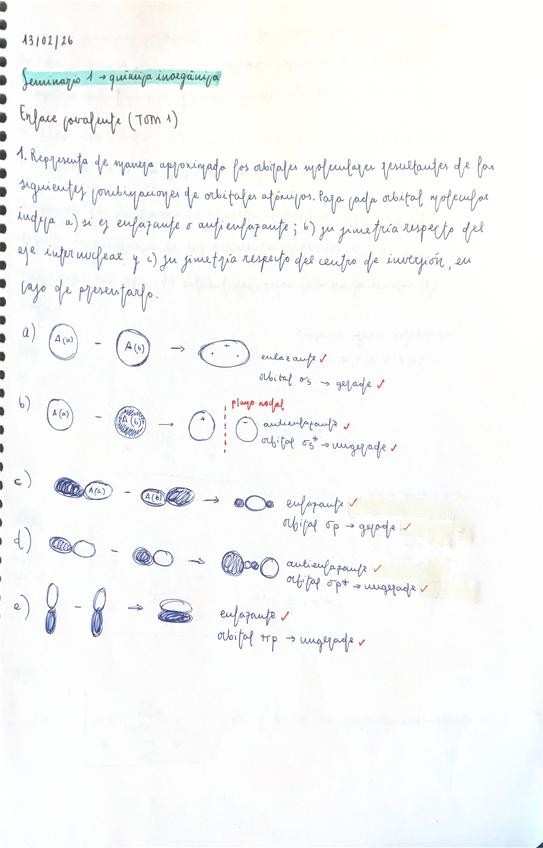 13/02/26
Seminario 1 → química inorgánica
Enlace covalente (TOM 1)
1. Representa de manera aproximada los orbitales moleculares resultantes de las
siguientes combinaciones de orbitales atómicos. Para cada orbital molecular
indica a) si es enlazante o antienlazante; b) su simetría respecto del
eje internuclear y c) su simetría respecto del centro de inversión, en
caso de presentarlo.
a) A(a) - A(b) → + enlazante ✓
orbital σs → gerade ✓
b) A(a) - A(b) → + plano nodal - antienlazante ✓
orbital σs* → ungerade ✓
c) A(a) - A(b) → enlazante ✓
orbital σp → gerade ✓
d) - → antienlazante ✓
orbital σp* → ungerade ✓
e) - → enlazante ✓
orbital πp → ungerade ✓